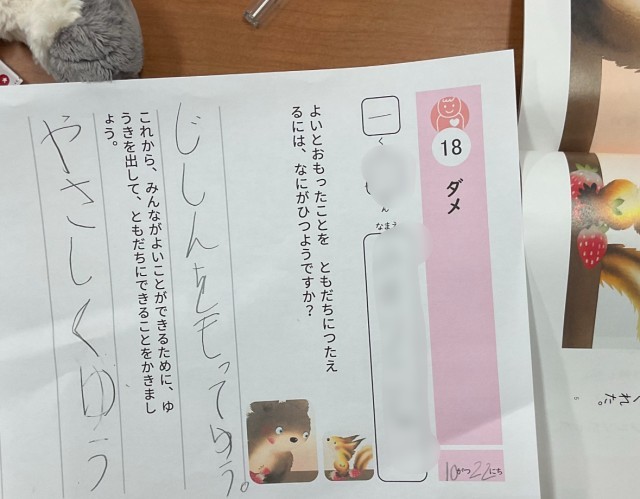 18
ダメ
10がつ22にち
一
く
ん
なま
よいとおもったことを ともだちにつたえ
るには、なにがひつようですか？
じしんをもってゆう。
これから、みんながよいことができるために、ゆ
うきを出して、ともだちにできることをかきまし
ょう。
やさしくゆう
れた。
5